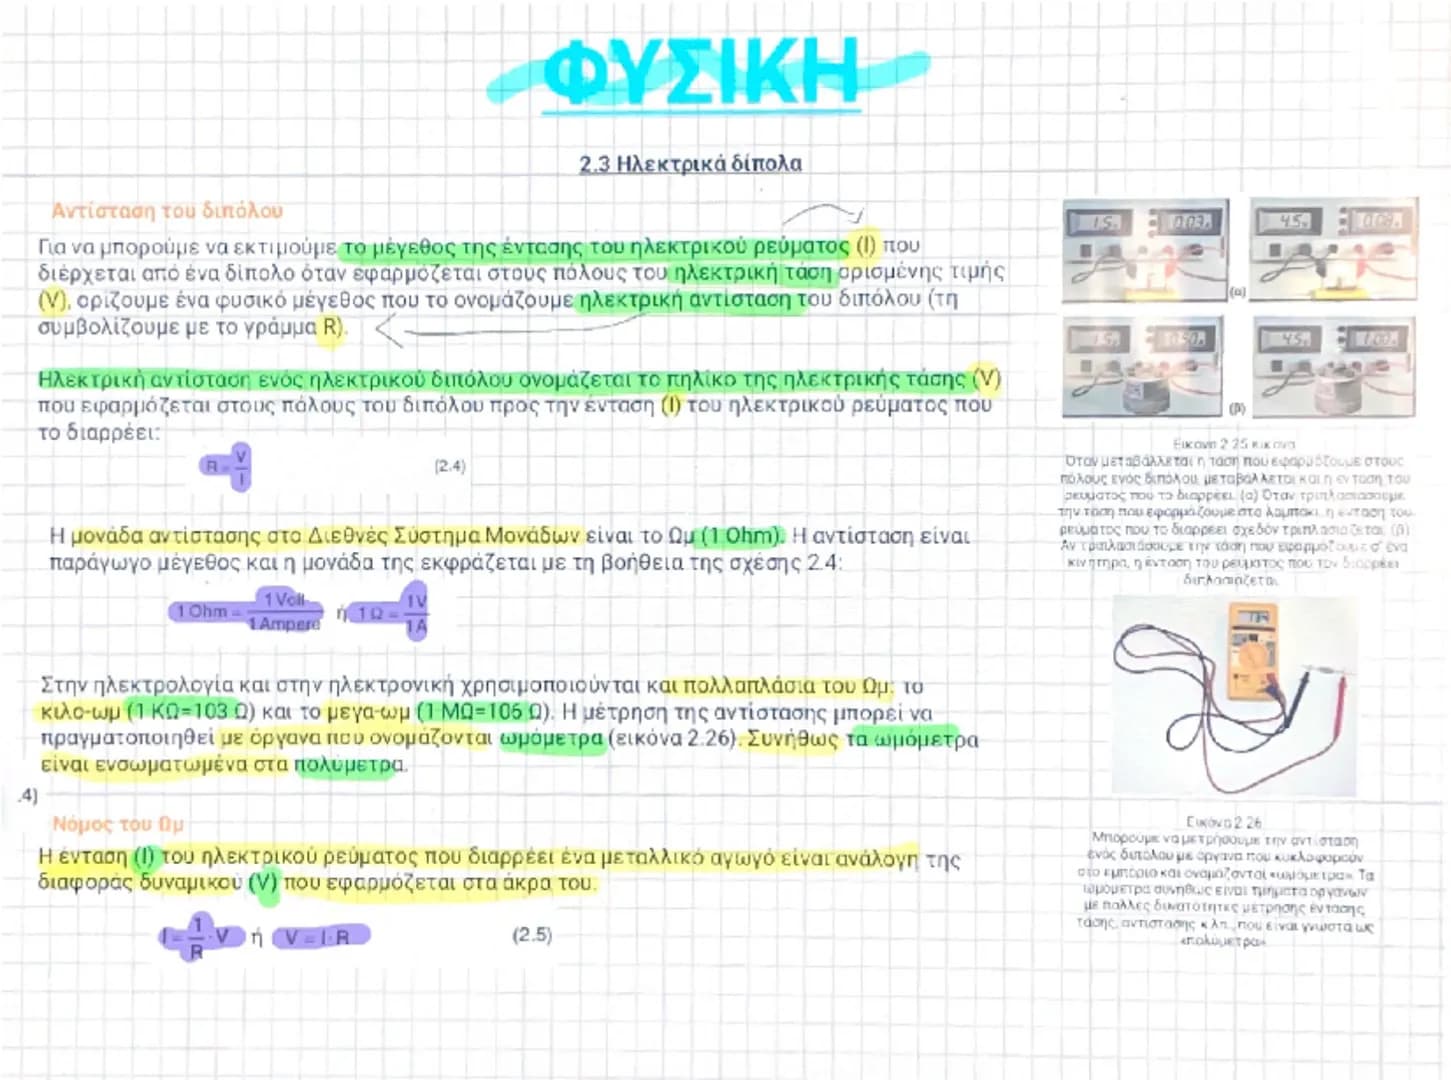 ΦΥΣΙΚΗ
2.3 Ηλεκτρικά δίπολα
Αντίσταση του διπόλου
Για να μπορούμε να εκτιμούμε το μέγεθος της έντασης του ηλεκτρικού ρεύματος (Ι) που
διέρχεται από ένα δίπολο όταν εφαρμόζεται στους πόλους του ηλεκτρική τάση ορισμένης τιμής
(V), ορίζουμε ένα φυσικό μέγεθος που το ονομάζουμε ηλεκτρική αντίσταση του διπόλου (τη
συμβολίζουμε με το γράμμα R).
Ηλεκτρική αντίσταση ενός ηλεκτρικού διπόλου ονομάζεται το πηλίκο της ηλεκτρικής τάσης (V)
που εφαρμόζεται στους πόλους του διπόλου προς την ένταση (Ι) του ηλεκτρικού ρεύματος που
το διαρρέει:
R = V/I (2.4)
Η μονάδα αντίστασης στο Διεθνές Σύστημα Μονάδων είναι το Ωμ (1 Ohm). Η αντίσταση είναι
παράγωγο μέγεθος και η μονάδα της εκφράζεται με τη βοήθεια της σχέσης 2.4:
1 Ohm = 1 Volt/1 Ampere ή 1 Ω = 1V/1A
Στην ηλεκτρολογία και στην ηλεκτρονική χρησιμοποιούνται και πολλαπλάσια του Ωμ: το
κιλο-ωμ (1 ΚΩ=103 Ω) και το μεγα-ωμ (1 ΜΩ=106 Ω). Η μέτρηση της αντίστασης μπορεί να
πραγματοποιηθεί με όργανα που ονομάζονται ωμόμετρα (εικόνα 2.26). Συνήθως τα ωμόμετρα
είναι ενσωματωμένα στα πολύμετρα.
.4)
Νόμος του Ωμ
Η ένταση (Ι) του ηλεκτρικού ρεύματος που διαρρέει ένα μεταλλικό αγωγό είναι ανάλογη της
διαφοράς δυναμικού (V) που εφαρμόζεται στα άκρα του:
I = 1/R · V ή V = I·R (2.5)
1.5 0.03
4.5
(α)
1.5 0.50
4.5 1.00
(β)
Εικόνα 2.25 εικόνα
Όταν μεταβάλλεται η τάση που εφαρμόζουμε στους
πόλους ενός διπόλου, μεταβάλλεται και η ένταση του
ρεύματος που το διαρρέει. (α) Όταν τριπλασιάσουμε
την τάση που εφαρμόζουμε στο λαμπάκι, η ένταση του
ρεύματος που το διαρρέει σχεδόν τριπλασιάζεται. (β)
Αν τριπλασιάσουμε την τάση που εφαρμόζουμε σ' ένα
κινητήρα, η ένταση του ρεύματος που τον διαρρέει
διπλασιάζεται.
Εικόνα 2.26
Μπορούμε να μετρήσουμε την αντίσταση
ενός διπόλου με όργανα που κυκλοφορούν
στο εμπόριο και ονομάζονται «ωμόμετρα». Τα
ωμόμετρα συνήθως είναι τμήματα οργάνων
με πολλές δυνατότητες μέτρησης έντασης,
τάσης, αντίστασης κ.λπ., που είναι γνωστά ως
«πολύμετρα»